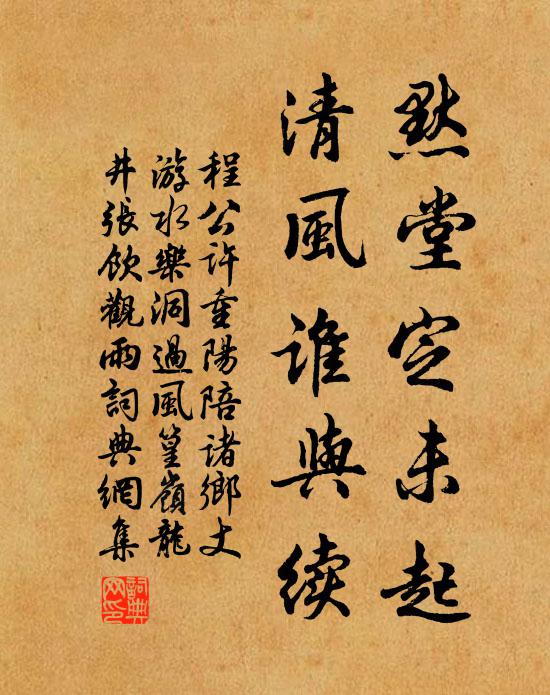 默堂定未起
清風誰與續
程公許重陽陪諸鄉丈
游水樂洞過風篁嶺龍
井張飲觀雨詞典網集
詞典
网印